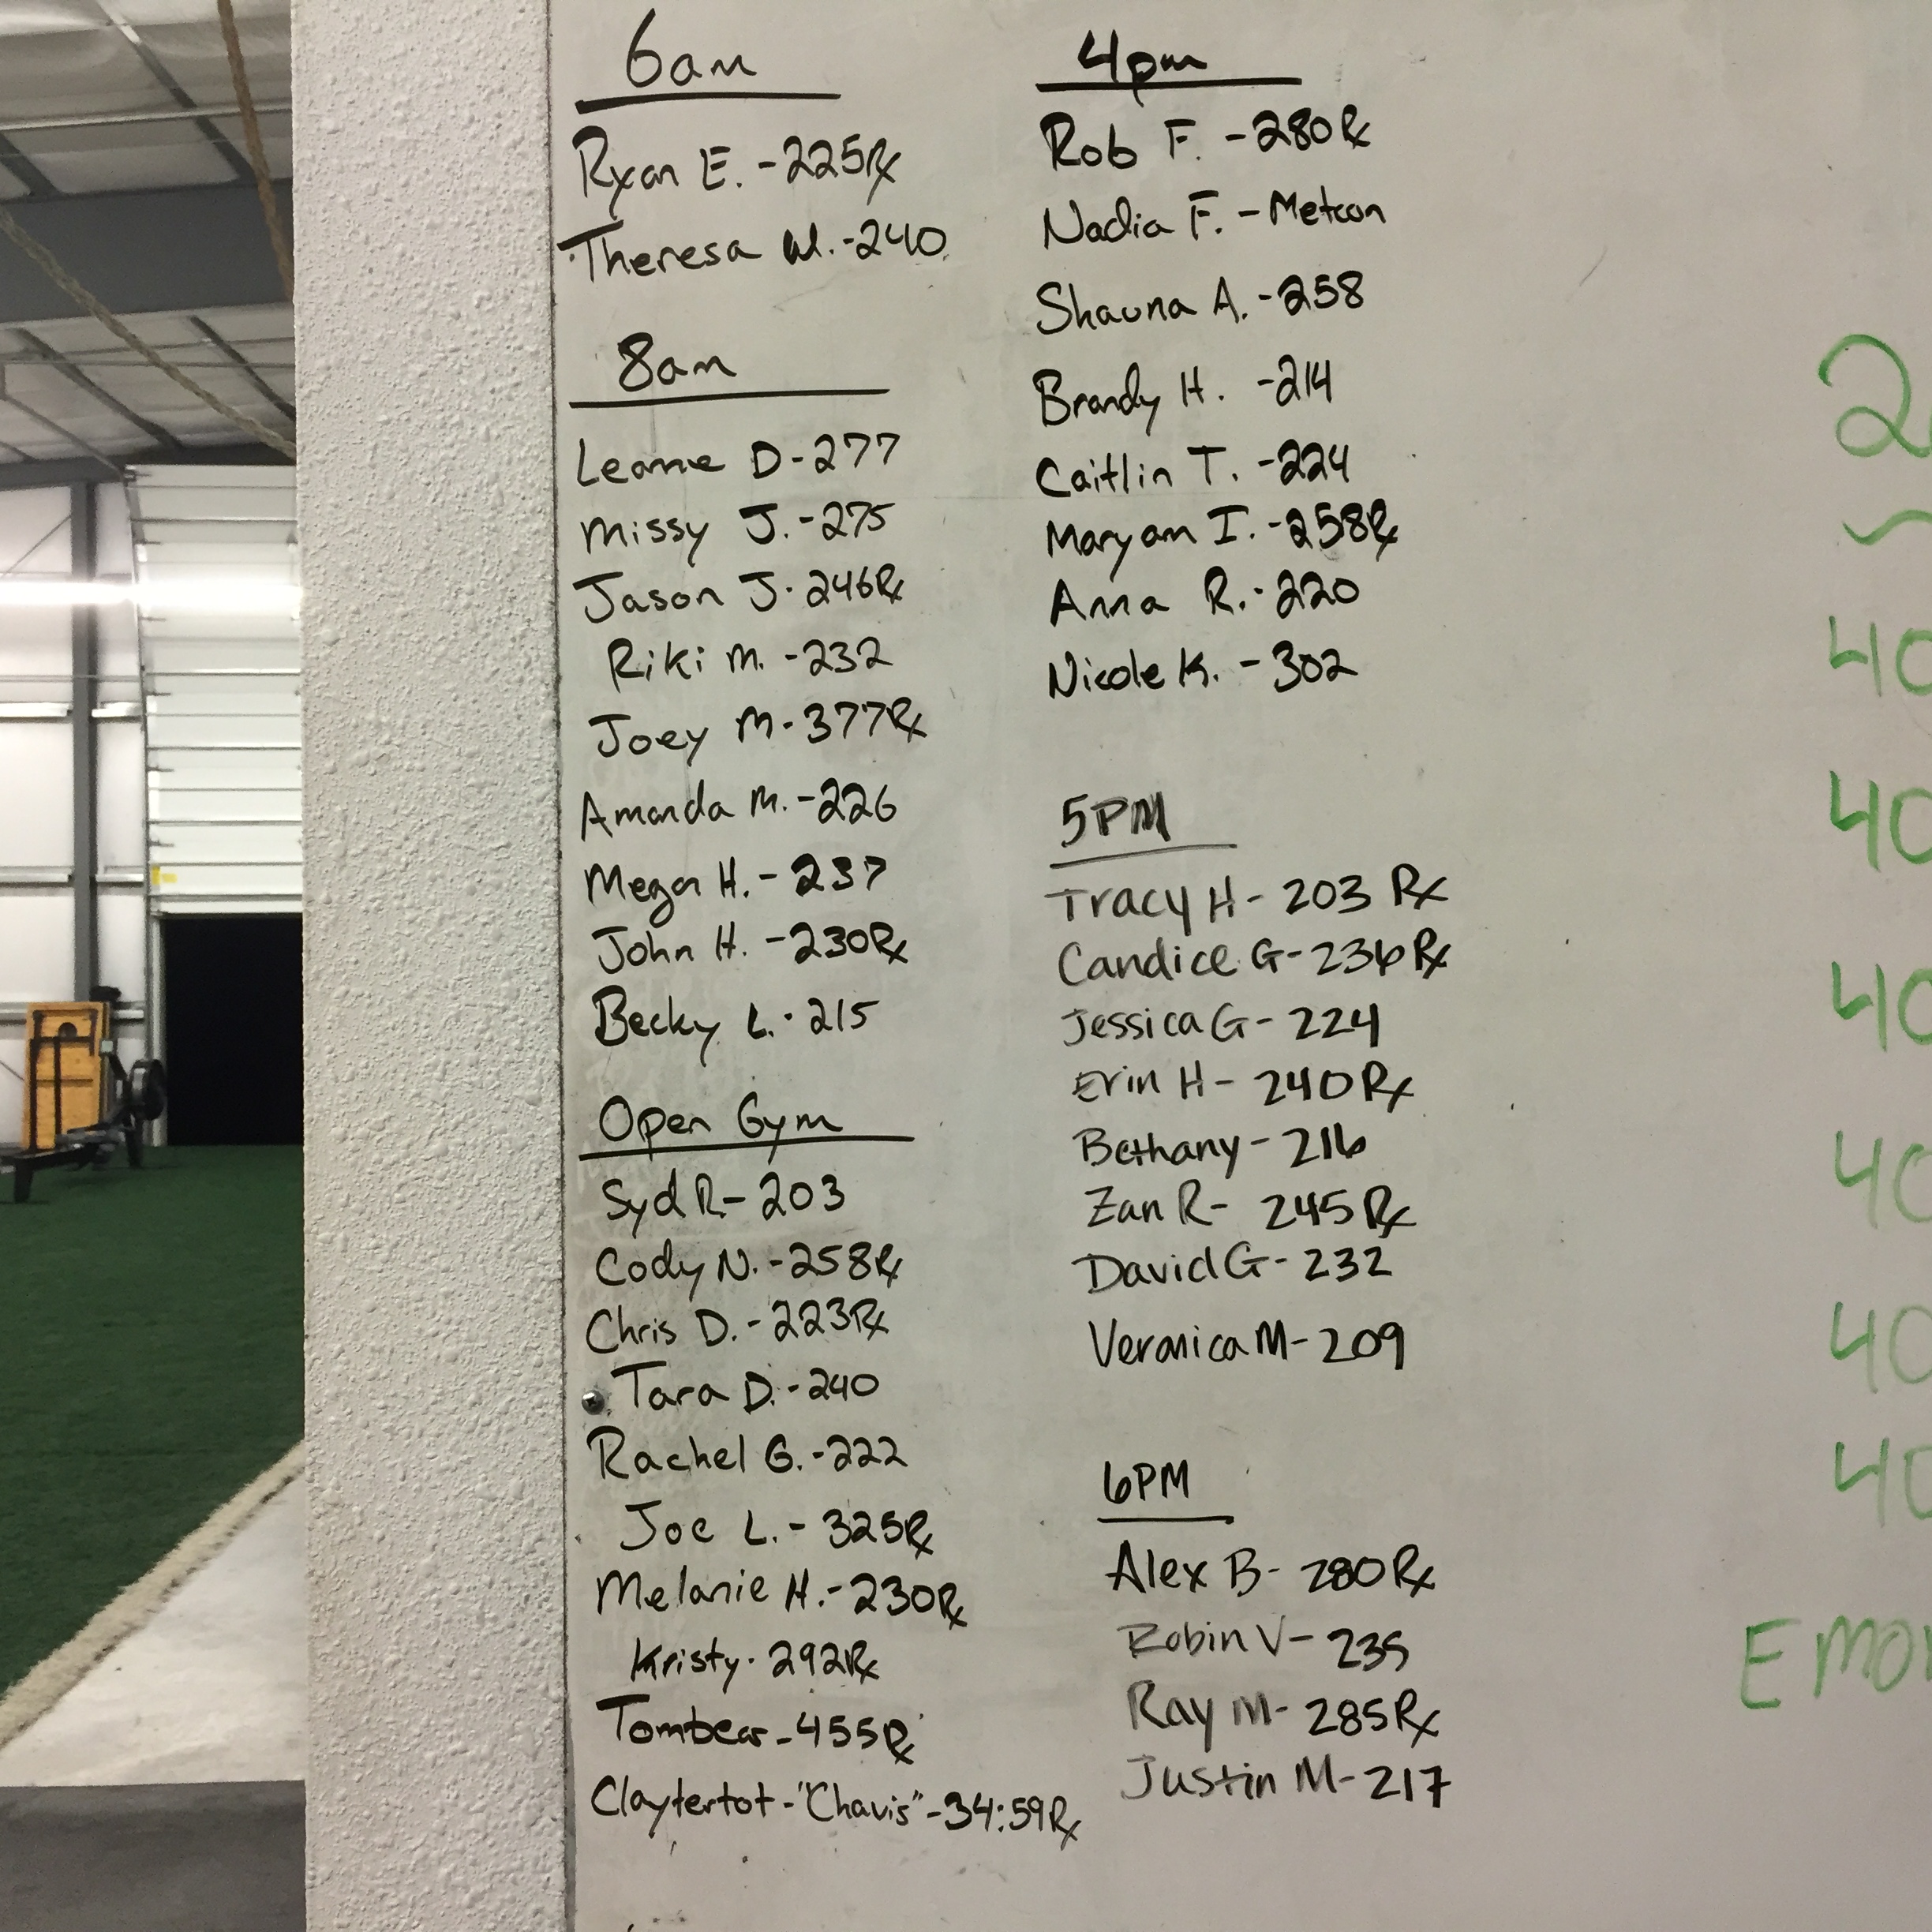 6am
Ryan E. -225Rx
Theresa W. -240
8am
Leanne D -277
Missy J. -275
Jason J. 246Rx
Riki M. -232
Joey M -377Rx
Amanda M. -226
Megan H. - 237
John H. -230Rx
Becky L. 215
Open Gym
Syd R - 203
Cody N. -258Rx
Chris D. -223Rx
Tara D. -240
Rachel G. -222
Joe L. - 325Rx
Melanie H. -230Rx
Kristy - 292Rx
Tombear - 455Rx
Claytertot - "Chavis" - 34:59Rx
4pm
Rob F. -280Rx
Nadia F. - Metcon
Shauna A. -258
Brandy H. -214
Caitlin T. -224
Maryam I. -258Rx
Anna R. -220
Nicole K. - 302
5PM
Tracy H - 203 Rx
Candice G - 236 Rx
Jessica G - 224
Erin H - 240 Rx
Bethany - 216
Zan R - 245 Rx
David G - 232
Veronica M - 209
6PM
Alex B - 280 Rx
Robin V - 235
Ray M - 285 Rx
Justin M - 217
2
40
40
40
40
40
40